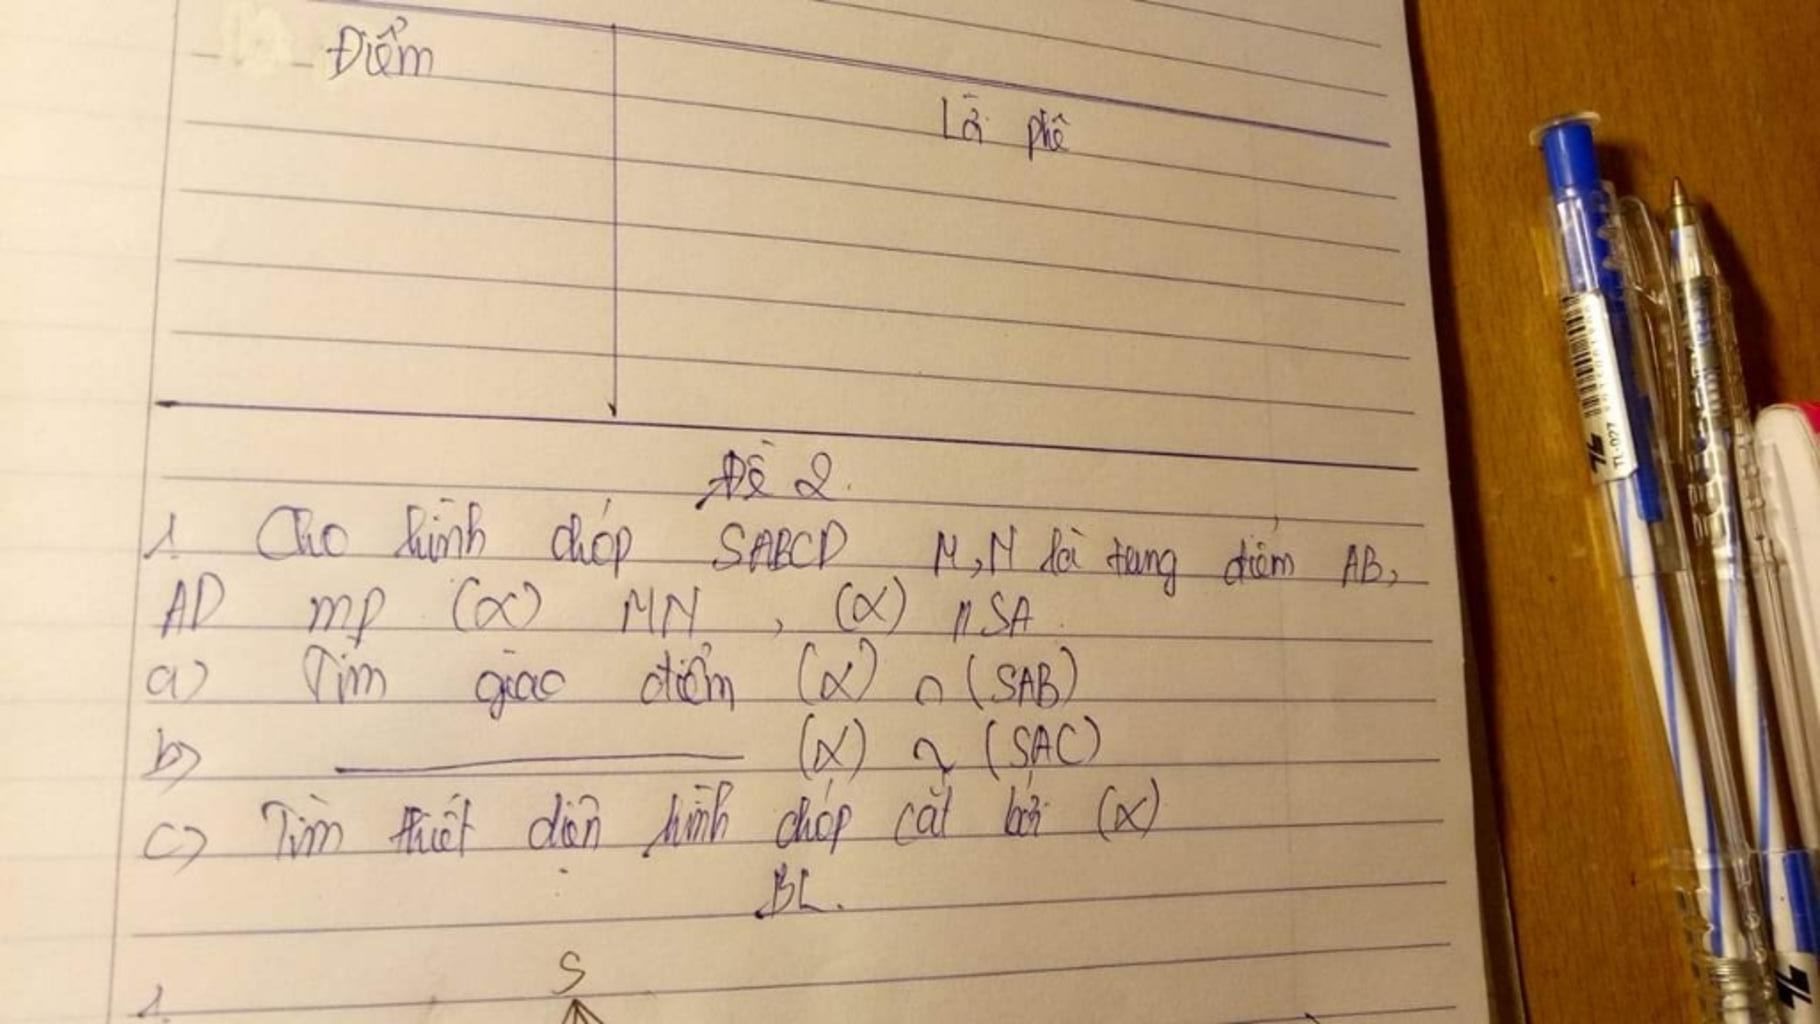 Điểm
Lời phê
Đề 2.
1. Cho hình chóp SABCD M, N là trung điểm AB,
AD mp (α) MN, (α) // SA.
a) Tìm giao điểm (α) ∩ (SAB)
b) ———— (α) ∩ (SAC)
c) Tìm thiết diện hình chóp cắt bởi (α)
BL.
S
1.
TL-027